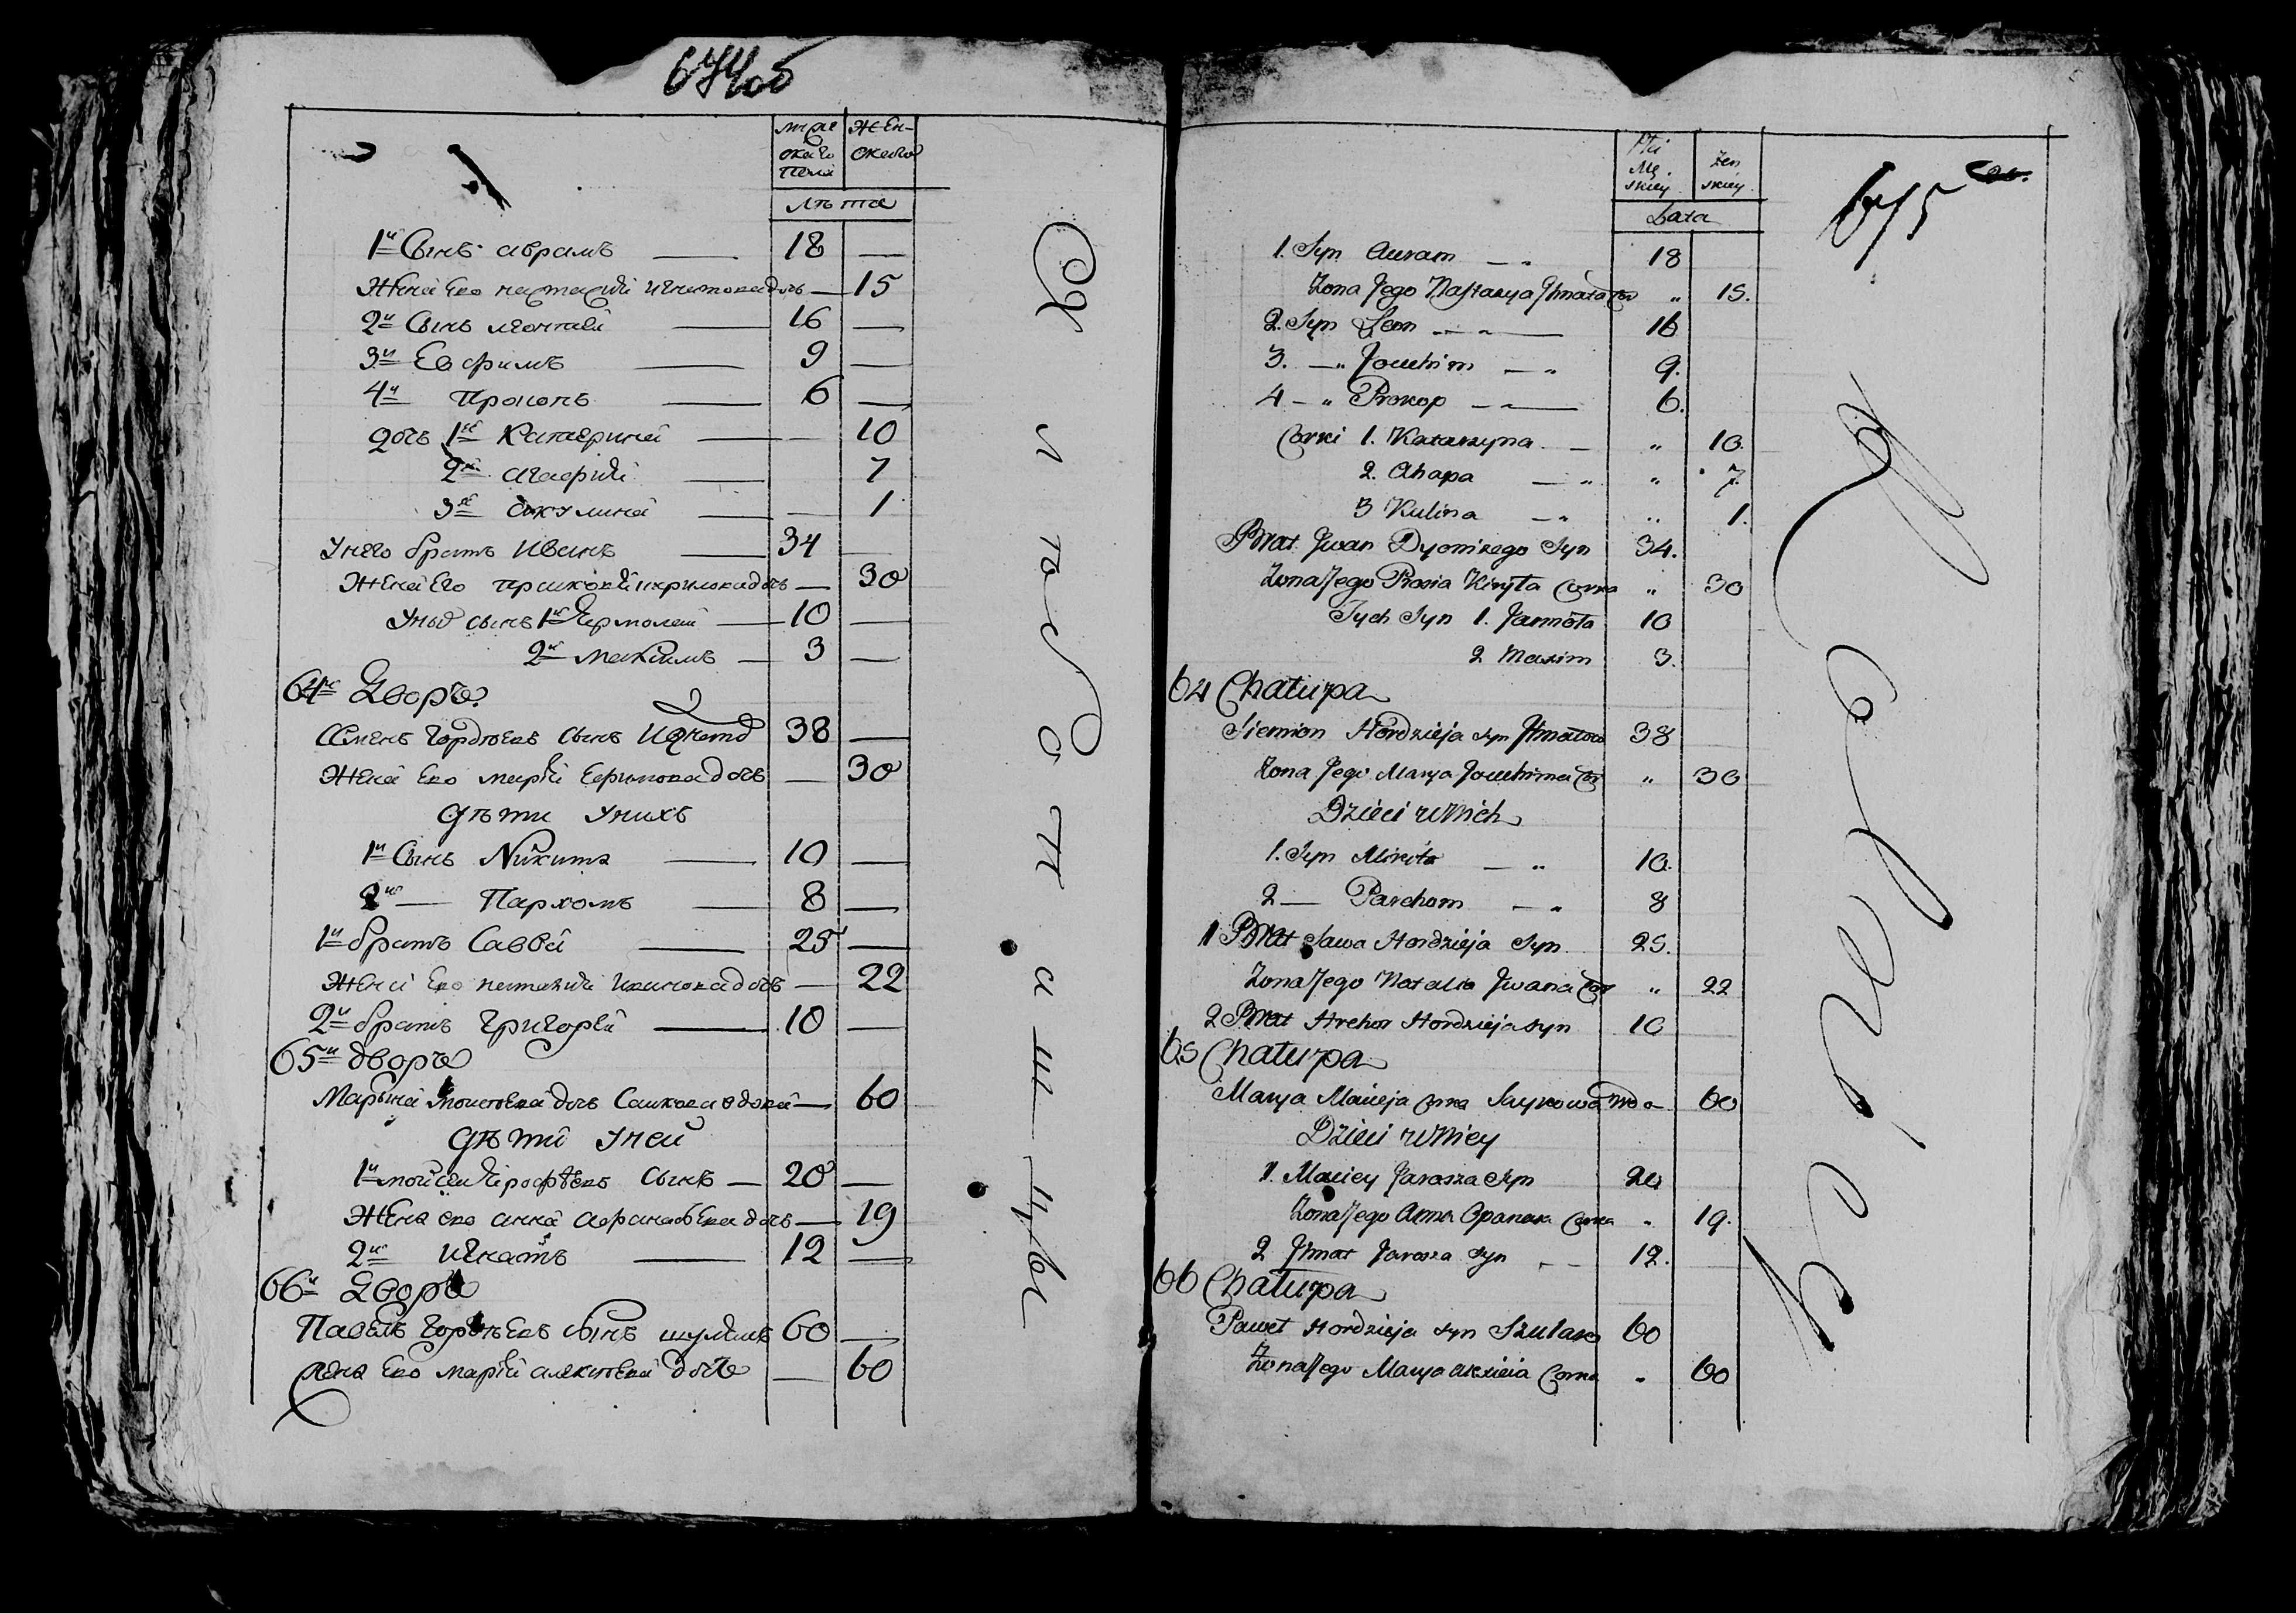 674об
мужескаго пола
женскаго
Лѣта
1й Сынъ аврамъ 18
Жена Его настасья игнатова дочь 15
2й Сынъ леонтей 16
3й Евфимъ 9
4й Прокопъ 6
дочь 1я Катерина 10
2я агафия 7
3я акулина 1
Унего братъ Иванъ 34
Жена Его прасковья кирилова дочь 30
Уных сынъ 1й Ермолай 10
2й максимъ 3
64й Дворъ
Семенъ Гордѣевъ Сынъ 38
Жена Ево марья Ефимова дочь 30
Дѣти Унихъ
1й Сынъ Никита 10
2й Пархомъ 8
1й братъ Савва 25
Жена Ево наталия иванова дочь 22
2й братъ Григорей 10
65й дворъ
Марьяна дочь вдова 60
Дѣти Уней
1й мойсей Ерофѣевъ Сынъ 20
Жена ево анна афанасьева дочь 19
2й Игнатъ 12
66й Дворъ
Павелъ Гордѣевъ Сынъ шулякъ 60
жена Ево марья алексѣева дочь 60
675
Płci Męskiey
Żenskiey
Lata
1. Syn Auram 18
Żona Jego Nastazya Jhnata Cor " 15.
2. Syn Leon 16
3. " Jouchim 9.
4 " Prokop 6.
Corki 1. Katarzyna " 10.
2. Ahapa " 7.
3 Kulina " 1.
Brat Jwan Dyonizego Syn 34.
Żona Jego Prosia Kiryła Corka " 30
Tych Syn 1. Jarmoła 10
2 Maxim 3.
64 Chałupa
Siemion Hordzieja syn 38
Żona Jego Marya Jouchima Cor " 30
Dzieci u Nich
1. Syn Mikita 10.
2 Parchom 8
1 Brat Sawa Hordzieja Syn 25.
Żona Jego Natalia Jwana Cor " 22
2 Brat Hrehor Hordzieja syn 10
65 Chałupa
Marya Macieja Corka Saykowa Wdo 60
Dzieci u Niey
1. Maciey Jarosza Syn 20
Żona Jego Anna Opanasa Corka " 19.
2 Jhnat Jarosza Syn 12.
66 Chałupa
Paweł Hordzieja syn Szulak 60
Żona Jego Marya Alexieia Corka " 60